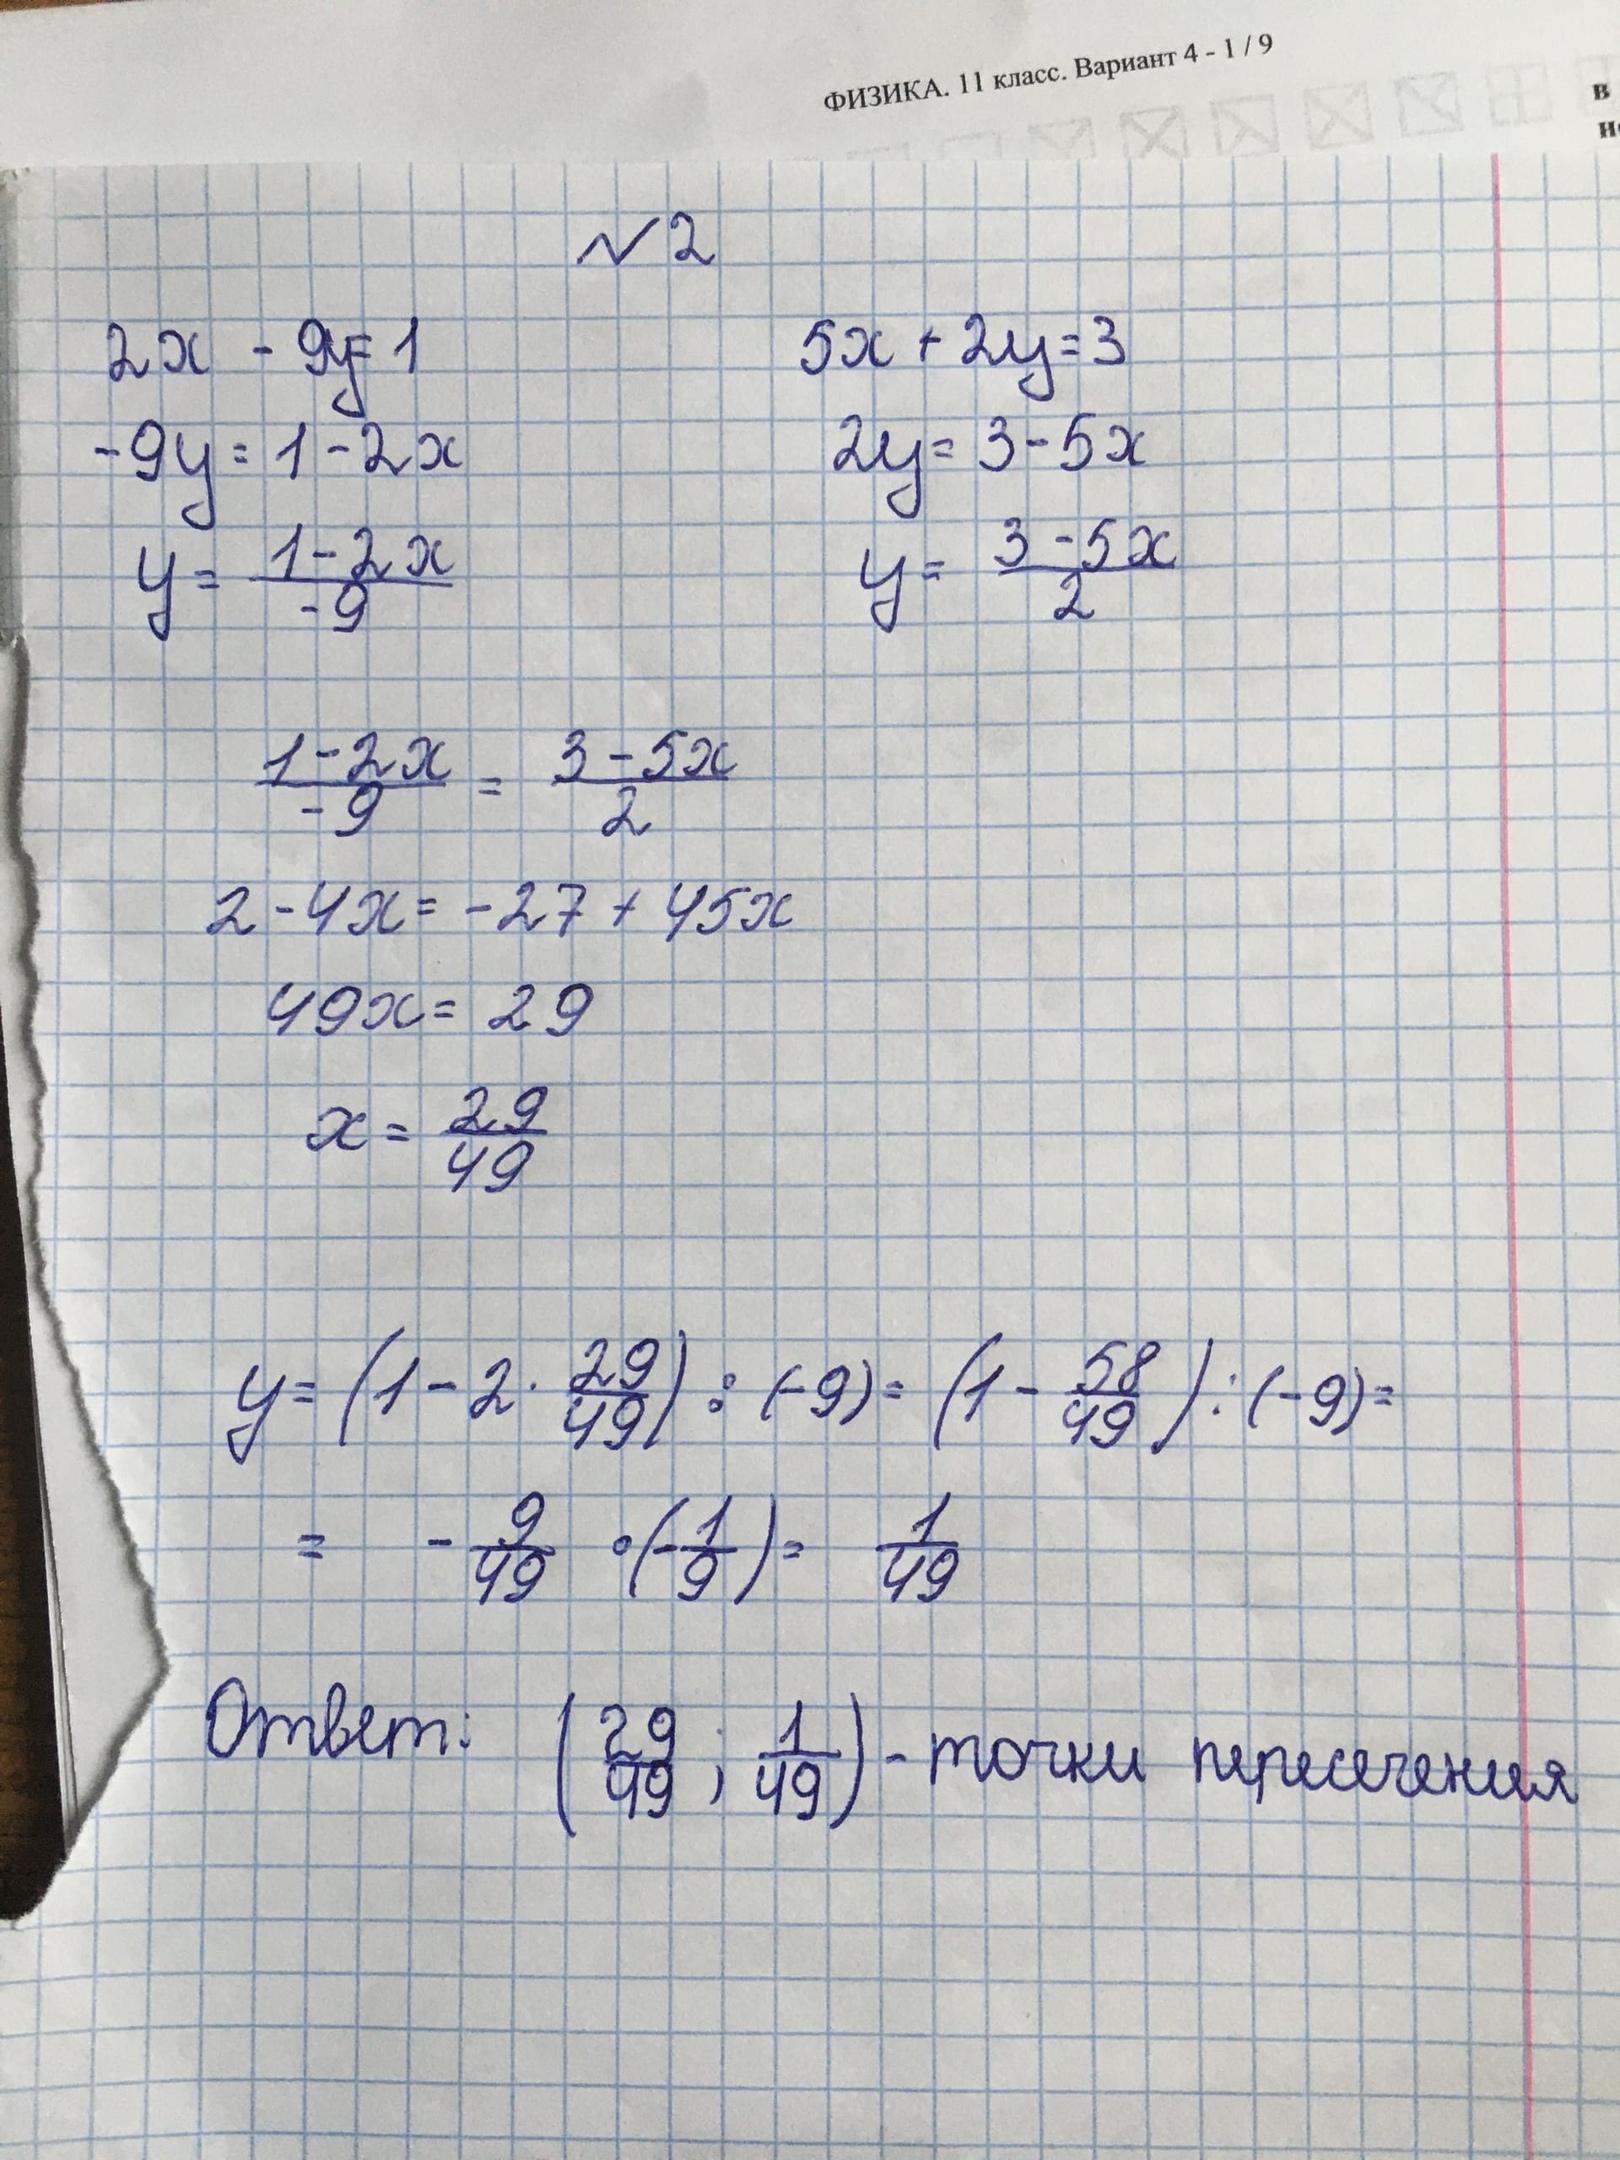 ФИЗИКА. 11 класс. Вариант 4 - 1 / 9
в
№2
2x - 9y = 1
5x + 2y = 3
-9y = 1 - 2x
2y = 3 - 5x
y = (1 - 2x)/(-9)
y = (3 - 5x)/2
(1 - 2x)/(-9) = (3 - 5x)/2
2 - 4x = -27 + 45x
49x = 29
x = 29/49
y = (1 - 2 · 29/49) : (-9) = (1 - 58/49) : (-9) =
= -9/49 · (-1/9) = 1/49
Ответ: (29/49 ; 1/49) - точки пересечения